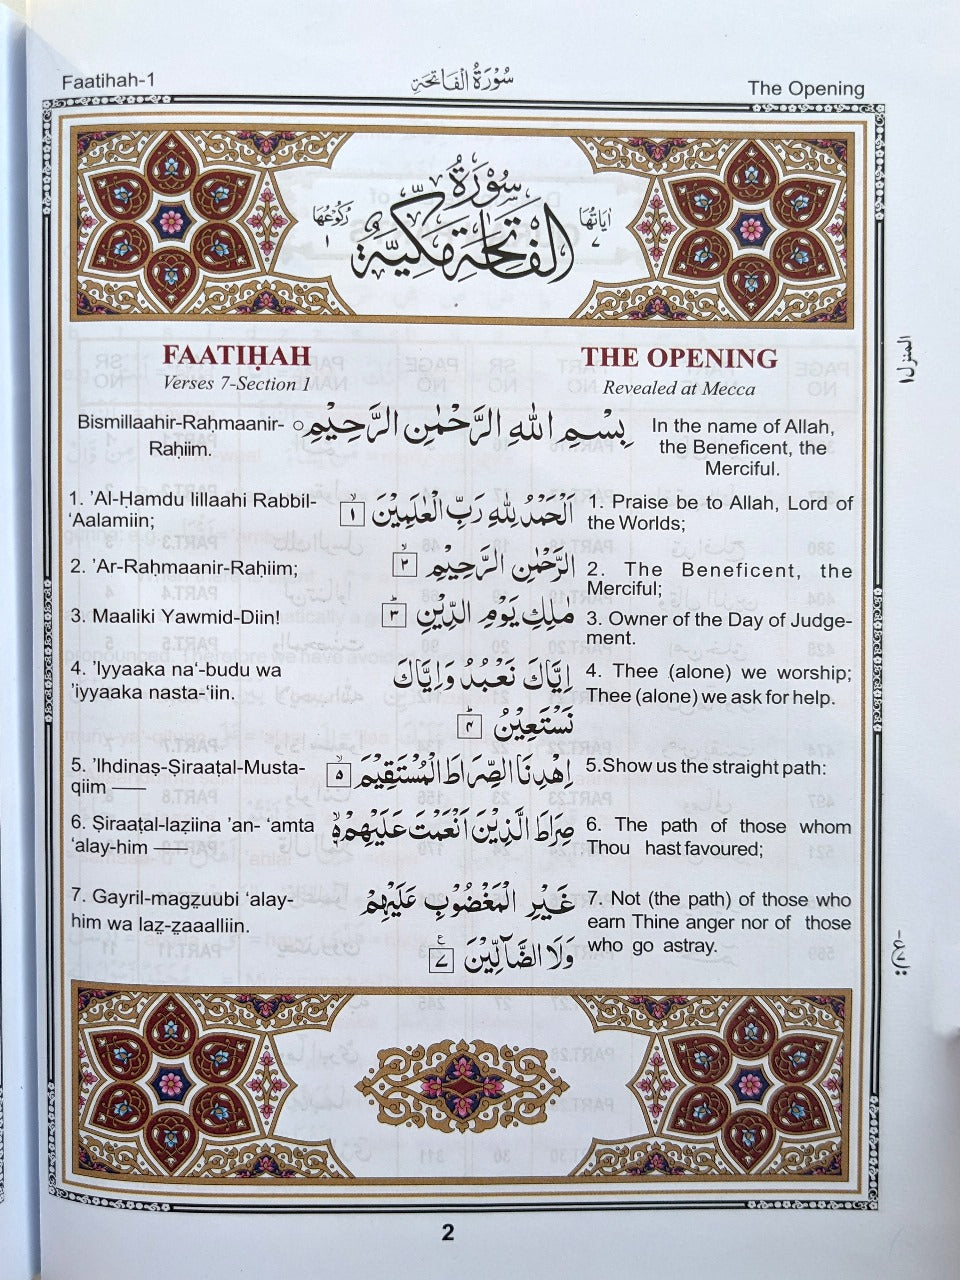 Faatihah-1
سُوْرَةُ الْفَاتِحَةِ
The Opening
سُوْرَةُ
اٰيَاتُهَا ٧
الْفَاتِحَةِ مَكِّيَّةٌ
رُكُوْعُهَا ١
FAATIḤAH
THE OPENING
Verses 7-Section 1
Revealed at Mecca
المنزل ١
Bismillaahir-Raḥmaanir-
Raḥiim.
بِسْمِ اللّٰهِ الرَّحْمٰنِ الرَّحِيْمِ ○
In the name of Allah,
the Beneficent, the
Merciful.
1. ’Al-Ḥamdu lillaahi Rabbil-
‘Aalamiin;
اَلْحَمْدُ لِلّٰهِ رَبِّ الْعٰلَمِيْنَ ١
1. Praise be to Allah, Lord of
the Worlds;
2. ’Ar-Raḥmaanir-Raḥiim;
الرَّحْمٰنِ الرَّحِيْمِ ٢
2. The Beneficent, the
Merciful;
3. Maaliki Yawmid-Diin!
مٰلِكِ يَوْمِ الدِّيْنِ ٣
3. Owner of the Day of Judge-
ment.
4. ’Iyyaaka na‘-budu wa
’iyyaaka nasta-‘iin.
اِيَّاكَ نَعْبُدُ وَاِيَّاكَ
نَسْتَعِيْنُ ٤
4. Thee (alone) we worship;
Thee (alone) we ask for help.
5. ’Ihdinaṣ-Ṣiraaṭal-Musta-
qiim ——
اِهْدِنَا الصِّرَاطَ الْمُسْتَقِيْمَ ٥
5.Show us the straight path:
6. Ṣiraaṭal-laẓiina ’an- ‘amta
‘alay-him ——
صِرَاطَ الَّذِيْنَ اَنْعَمْتَ عَلَيْهِمْ
6. The path of those whom
Thou hast favoured;
7. Gayril-magẓuubi ‘alay-
him wa laẓ-ẓaaalliin.
غَيْرِ الْمَغْضُوْبِ عَلَيْهِمْ
وَلَا الضَّآلِّيْنَ ٧
7. Not (the path) of those who
earn Thine anger nor of those
who go astray.
2